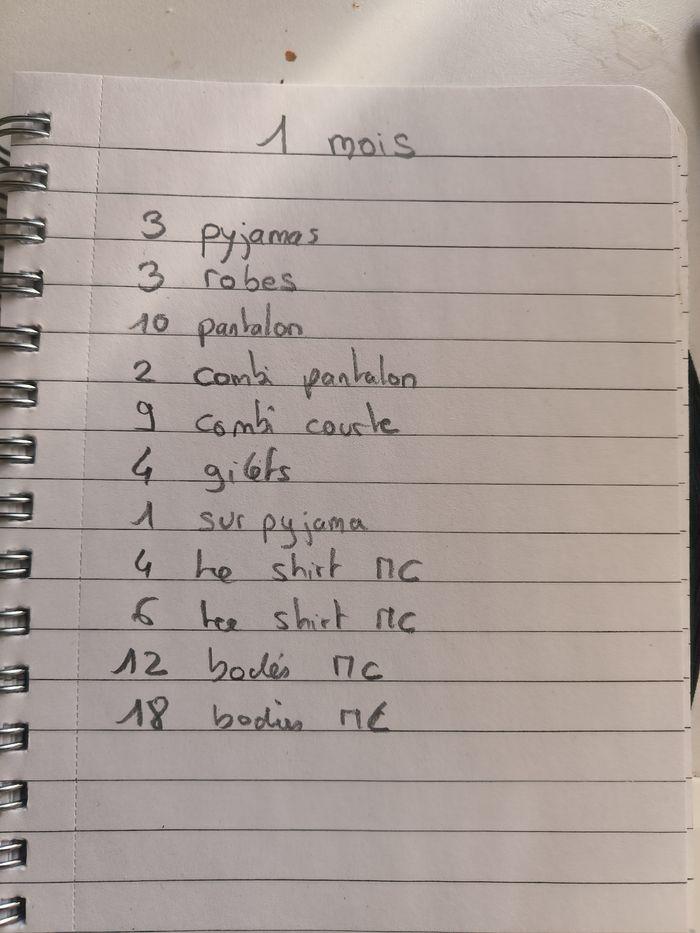 1 mois
3 pyjamas
3 robes
10 pantalon
2 combi pantalon
9 combi courte
4 gilets
1 sur pyjama
4 tee shirt MC
6 tee shirt MC
12 bodés MC
18 bodies ML